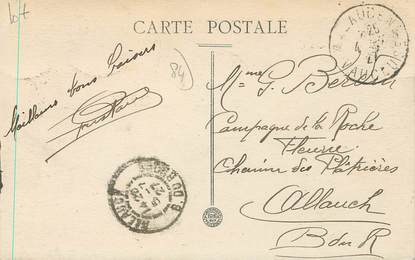 lot
CARTE POSTALE
84
Meilleurs bons baisers
Gustave
Mme G.
Campagne de la Roche
Fleurie
Chemin des Plâtrières
Allauch
B du R
ALLAUCH
B. DU RHONE